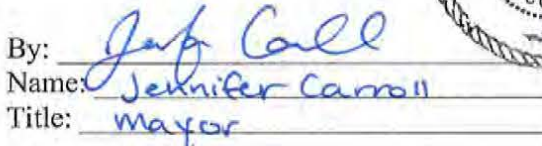 By: Jenf Carll
Name: Jennifer Carroll
Title: mayor